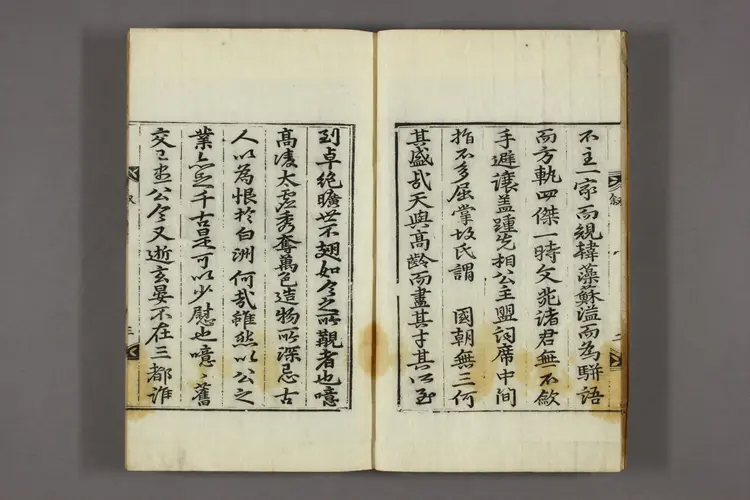 不主一家而規韓藻蘇溢而為駢語
而方軌四傑一時文苑諸君無不斂
手避讓盖踵先相公主盟詞席中間
指不多屈掌故氏謂 國朝無三何
其盛哉天與高齡而盡其才其所至
叙
二
到卓絶曠世不翅如今之所覩者也噫
高凌太虛秀奪萬色造物所深忌古
人以為恨於白洲何哉雖然以公之
業亦足千古是可以少慰也噫噫舊
交已盡公今又逝玄晏不在三都誰
叙
三